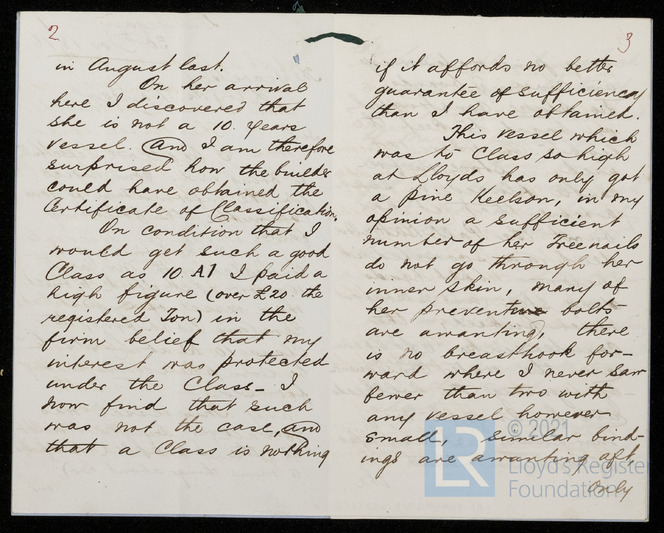 2
in August last.
On her arrival
here I discovered that
she is not a 10. Years
vessel. And I am therefore
surprised how the builder
could have obtained the
Certificate of Classification.
On condition that I
would get such a good
Class as 10 A1 I paid a
high figure (over £20 the
registered Ton) in the
firm belief that my
interest was protected
under the Class - I
now find that such
was not the case, and
that a Class is nothing
3
if it affords no better
guarantee of sufficiency
than I have obtained.
This vessel which
was to Class so high
at Lloyds has only got
a pine Keelson, in my
opinion a sufficient
number of her Treenails
do not go through her
inner skin, many of
her preventive bolts
are awanting, there
is no breasthook for-
ward where I never saw
fewer than two with
any vessel however
small, similar bind-
ings are awanting aft.
Only
© 2021
LR
Lloyd's Register
Foundation